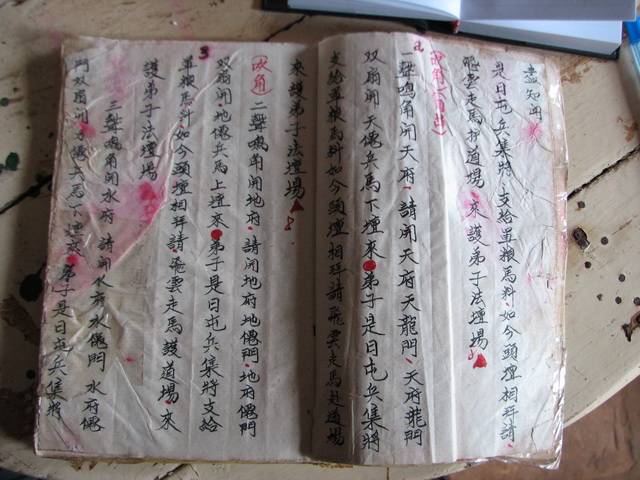 盡知聞
是日屯兵集將支給軍粮馬料如今頭壇相拜請
飛雲走馬赴道場來護弟子法壇場
2
一聲鳴角開天府請開天府天龍門天府龍門
双扇開天僊兵馬下壇來弟子是日屯兵集將
支給軍粮馬料如今頭壇相拜請飛雲走馬赴道場
來護弟子法壇場
3
吹角
二聲鳴角開地府請開地府地僊門地府僊門
双扇開地僊兵馬上壇來弟子是日屯兵集將支給
軍粮馬料如今頭壇相拜請飛雲走馬護道場來
護弟子法壇場
三聲鳴角開水府請開水府水僊門水府僊
門双扇開水僊兵馬下壇來弟子是日屯兵集將